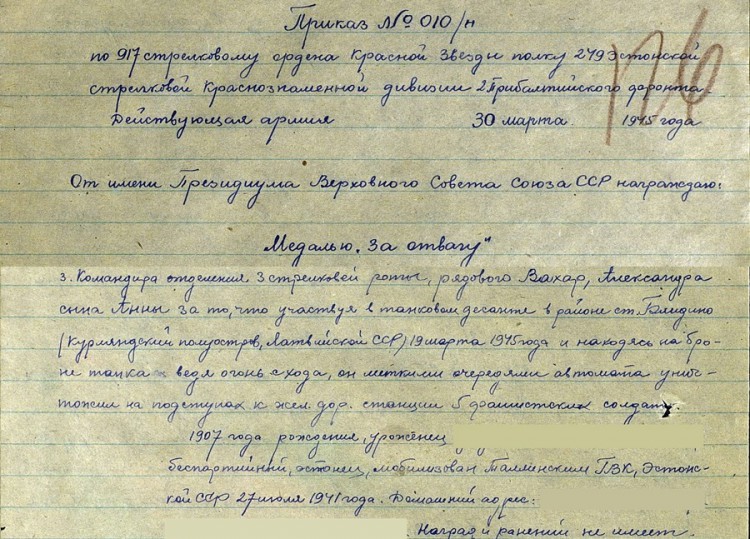 Приказ № 010/н
по 917 стрелковому ордена Красной Звезды полку 249 Эстонской
стрелковой Краснознаменной дивизии 2 Прибалтийского фронта.
Действующая армия 30 марта 1945 года
От имени Президиума Верховного Совета Союза ССР награждаю:
Медалью „За отвагу"
3. Командира отделения 3 стрелковой роты, рядового Вахар, Александра
сына Анны за то, что участвуя в танковом десанте в районе ст. Блидино
(Курляндский полуостров, Латвийской ССР) 19 марта 1945 года и находясь на бро-
не танка ведя огонь с хода, он меткими очередями автомата унич-
тожил на подступах к жел. дор. станции 5 фашистских солдат.
1907 года рождения, уроженец
беспартийный, эстонец, мобилизован Таллинским ГВК, Эстонс-
кой ССР 27 июля 1941 года. Домашний адрес:
Наград и ранений не имеет.